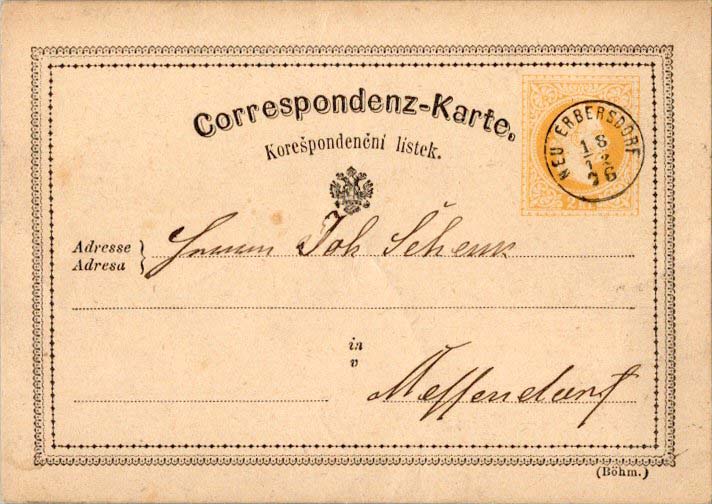 Correspondenz-Karte.
Korešpondenční lístek.
NEU ERBERSDORF
18
12
76
Adresse
Adresa
Herrn Joh Schenk
in
v
Meffendorf
(Böhm.)